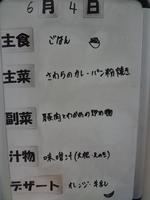 6月4日
主食 ごはん
主菜 さわらのカレーパン粉焼き
副菜 豚肉とわかめの炒め物
汁物 味噌汁(大根・えのき)
デザート オレンジ・牛乳